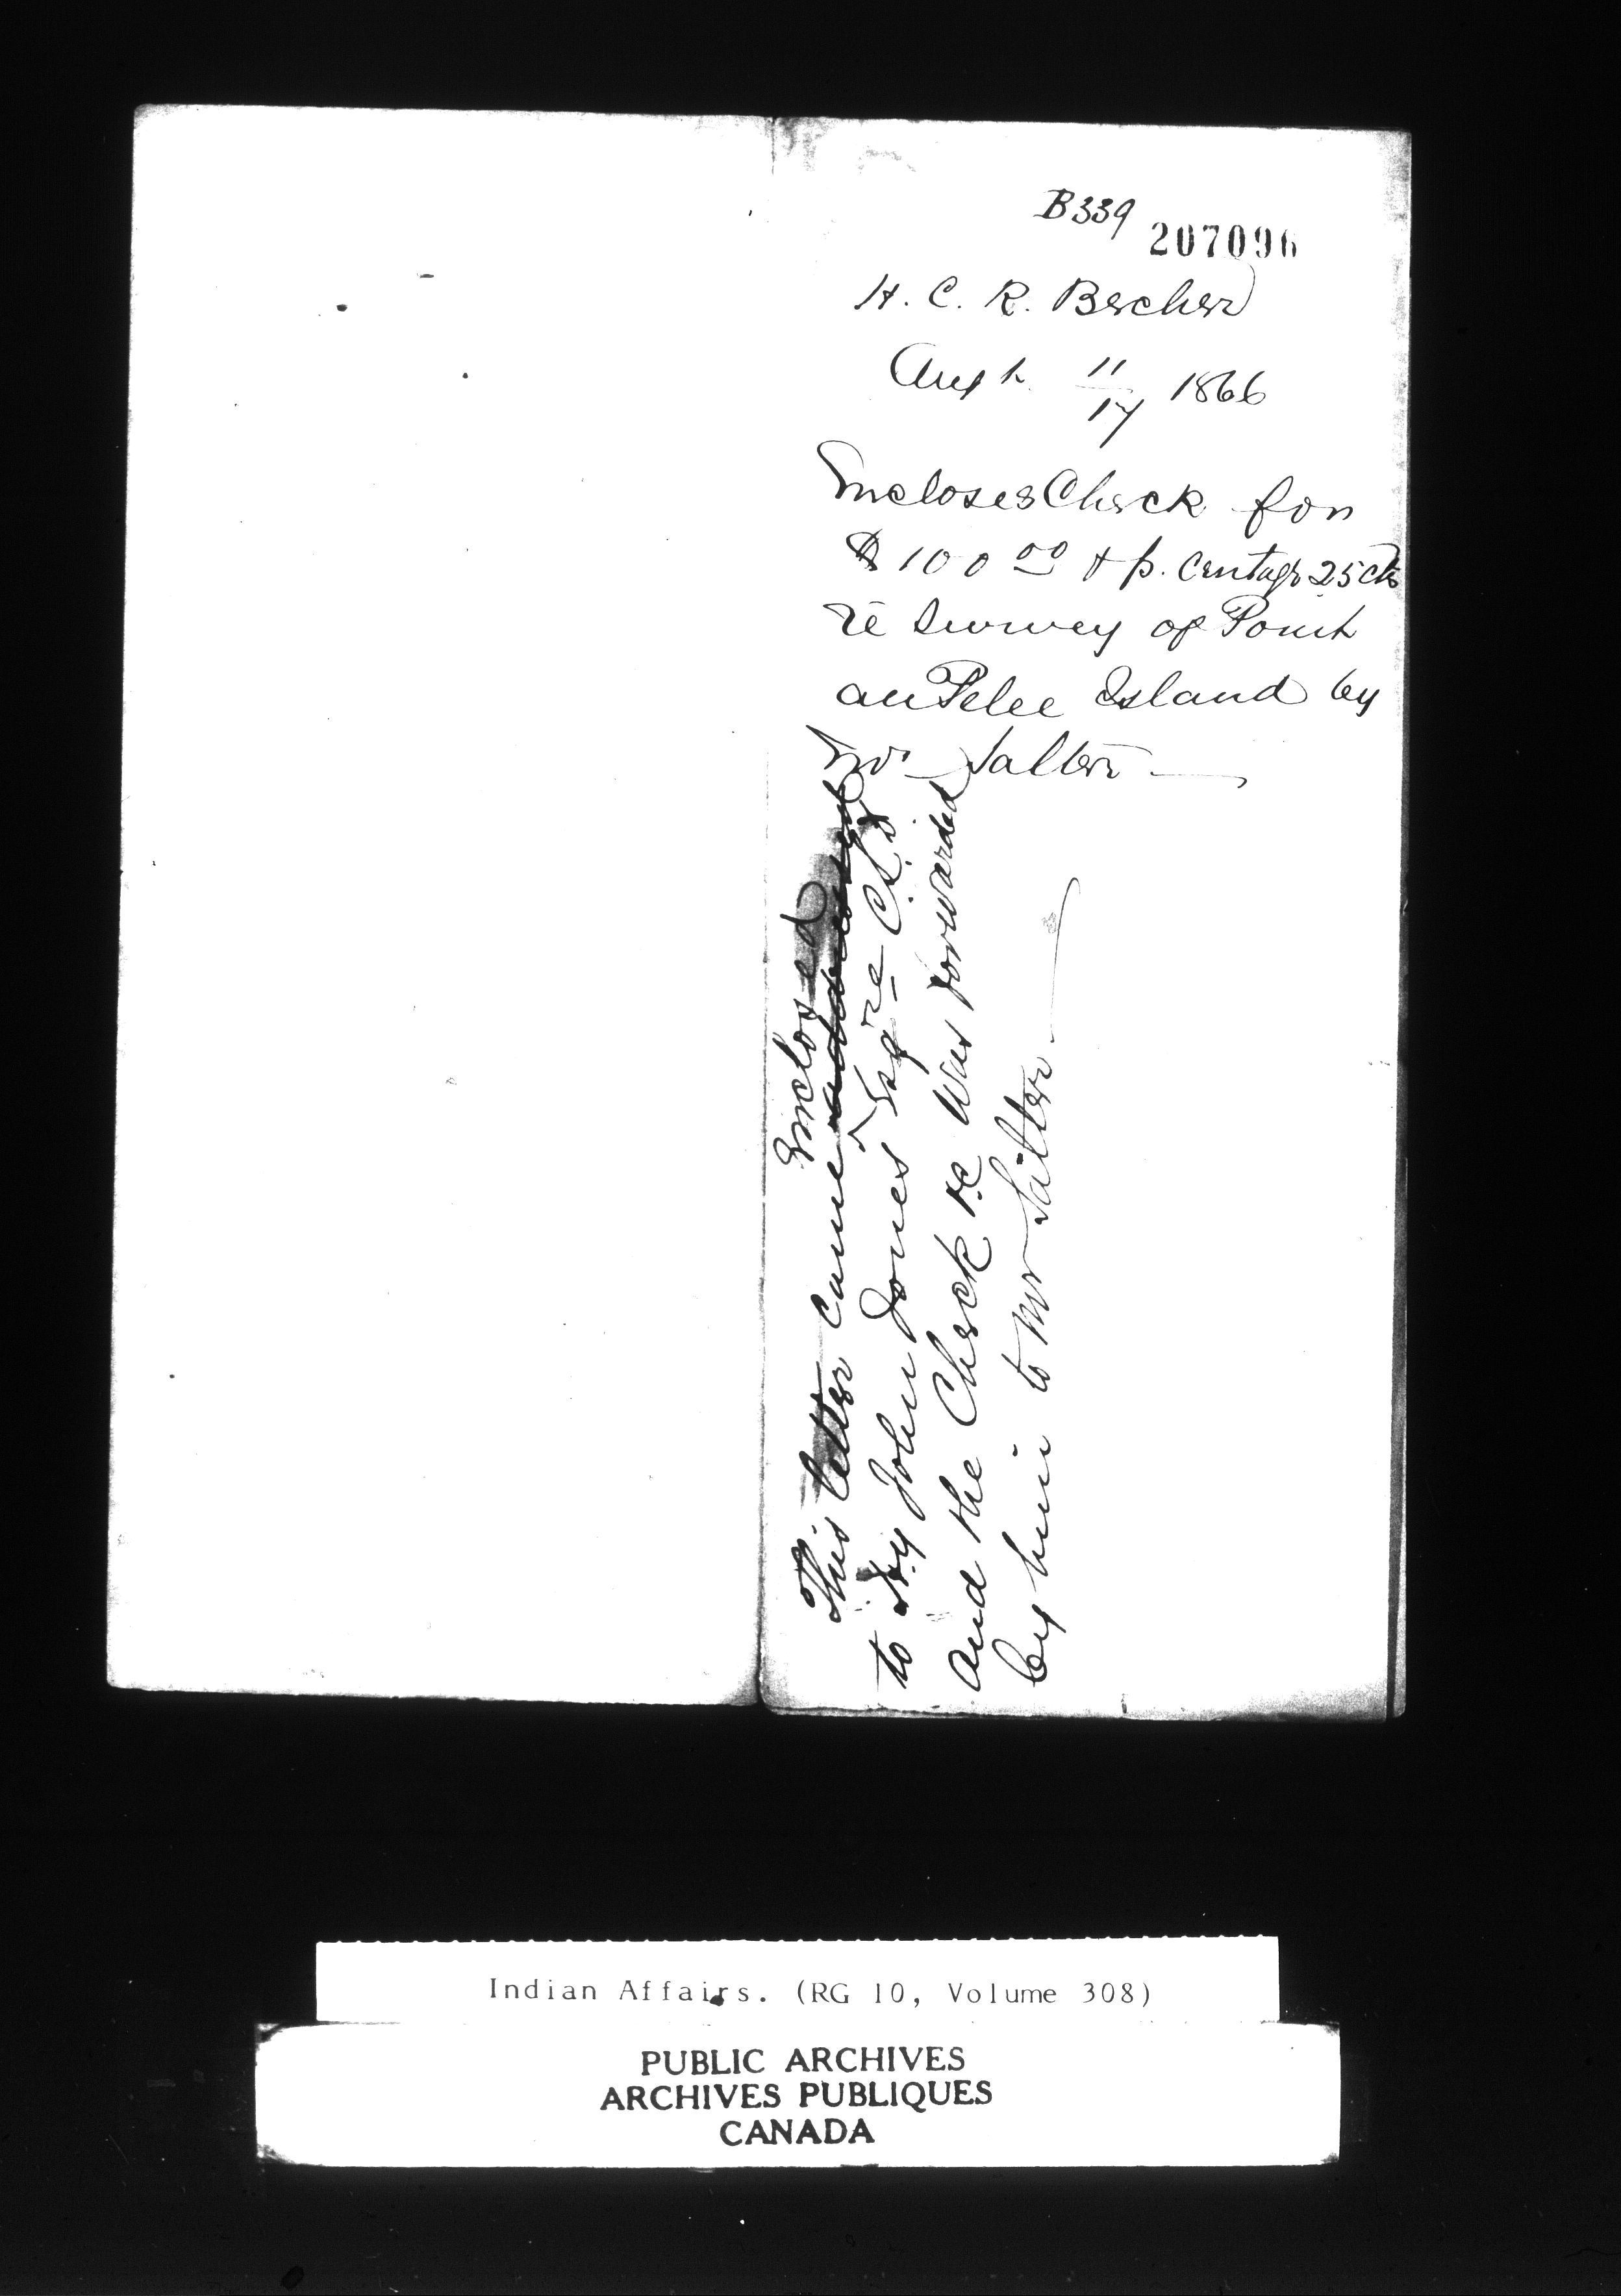 B339
207096
H. C. R. Becher
Augt 11/17 1866
Encloses Check for
$100 00 & p. Centage 25 cts
re Survey of Point
au Pelee Island by
Mr Salter —
Enclosed
This letter came addressed
to Wy John Jones Esqre C.L.S
and the Check &c was forwarded
by him to Mr Salter —
Indian Affairs. (RG 10, Volume 308)
PUBLIC ARCHIVES
ARCHIVES PUBLIQUES
CANADA